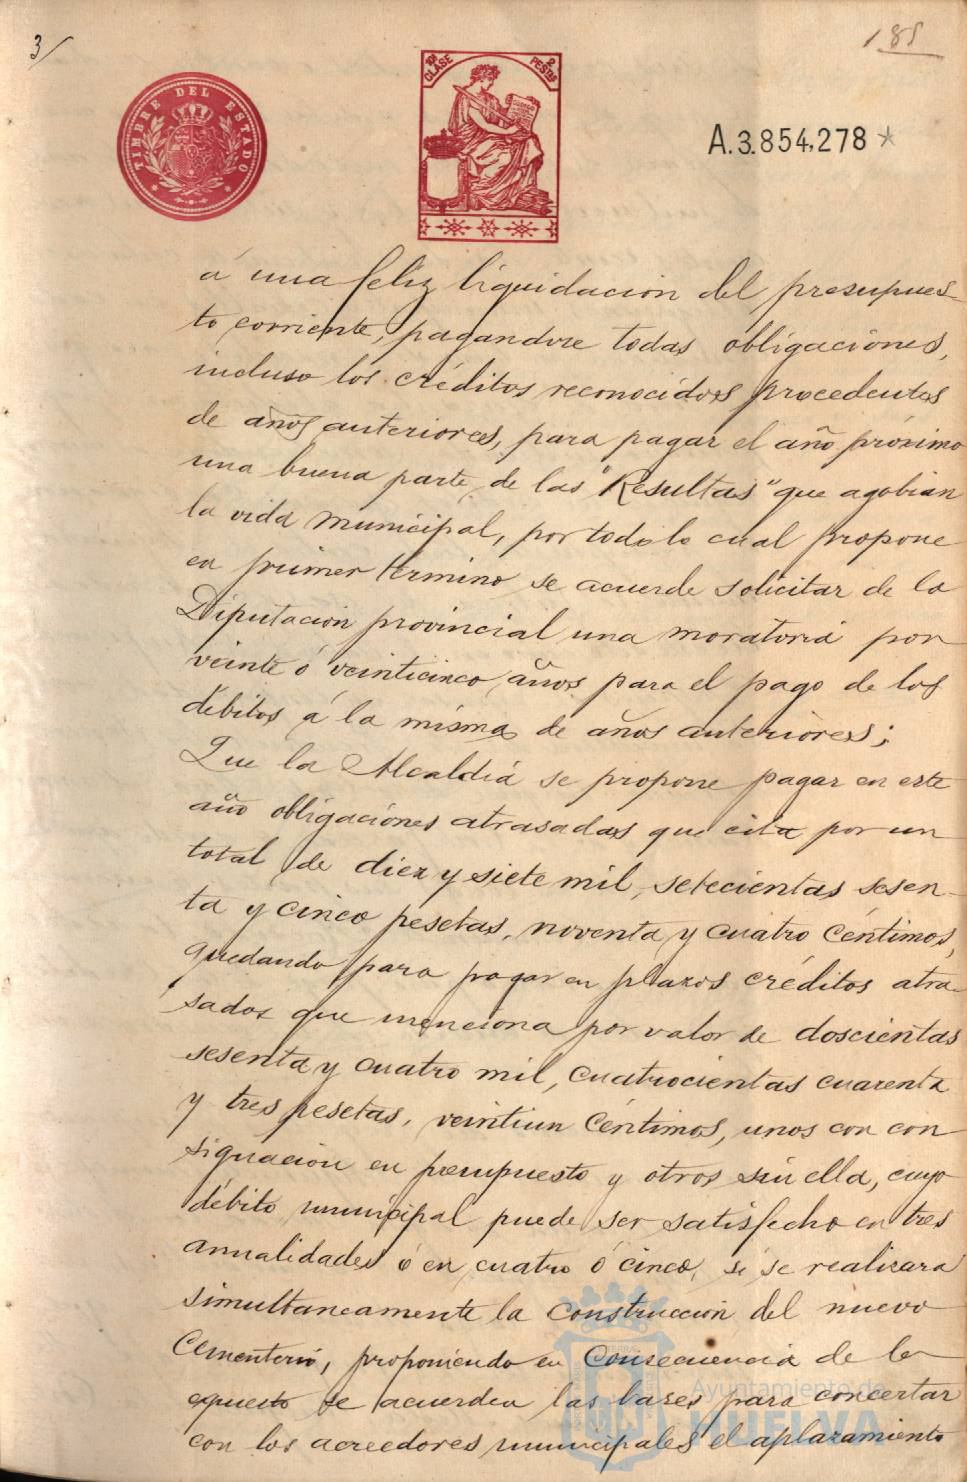 3/
188
TIMBRE DEL ESTADO
10ª CLASE
2 PESTAS
A.3.854,278 *
á una feliz liquidación del presupues-
to corriente, pagandose todas obligaciones,
incluso los créditos reconocidos procedentes
de años anteriores, para pagar el año próximo
una buena parte de las "Resultas" que agobian
la vida municipal, por todo lo cual propone
en primer término se acuerde solicitar de la
Diputación provincial una moratoria por
veinte ó veinticinco años para el pago de los
débitos á la misma de años anteriores;
Que la Alcaldía se propone pagar en este
año obligaciones atrasadas que cita por un
total de diez y siete mil, setecientas sesen-
ta y cinco pesetas, noventa y cuatro céntimos,
quedando para pagar en plazos créditos atra-
sados que menciona por valor de doscientas
sesenta y cuatro mil, cuatrocientas cuarenta
y tres pesetas, veintiun céntimos, unos con con
signación en presupuesto y otros sin ella, cuyo
débito municipal puede ser satisfecho en tres
anualidades ó en cuatro ó cinco, si se realizara
simultaneamente la construcción del nuevo
Cementerio, proponiendo en consecuencia de lo
expuesto se acuerden las bases para concertar
con los acreedores municipales el aplazamiento
Ayuntamiento de
HUELVA